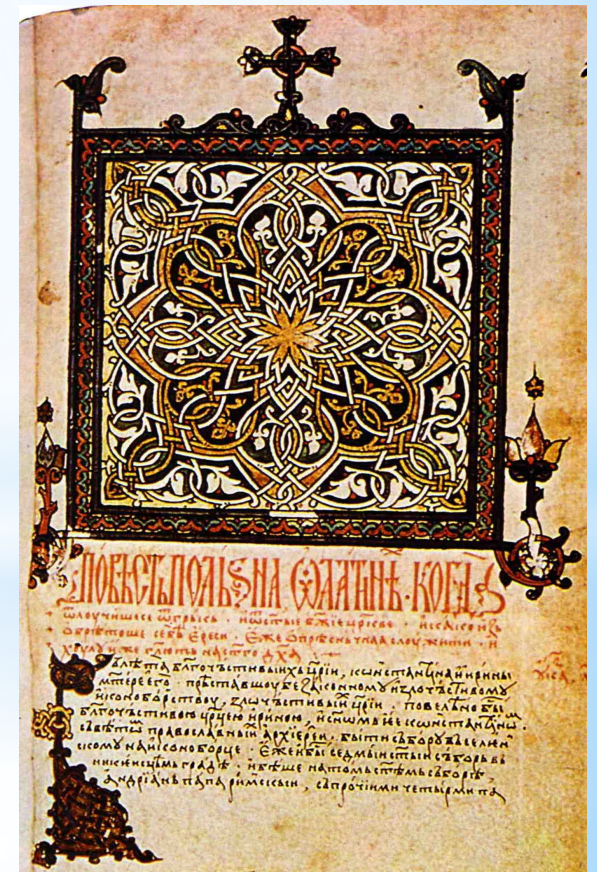 ПОВѢСТЬ ПОЛЬꙂНА Ѡ ЛАТИНѢ · КОГДА
ѿлоучишесе ѿ грькь · и ѿ стые бжїе цркве ·
ѡбрѣтоше себѣ ереси · еже ѡпрѣсньчнаа слоужити · и
хоулоу иже на стго дха
въ лѣта блгочьстивыихь црїи, кѡнстанцїна и ирины
мтере его · прѣставшоу беззаконномоу и злочьстивомоу
иконоборствоу, злочьстивыи црїи · повелѣно бы
блгочьстивою црцею ириною, и сномь ее кѡнстанцїнѡм ·
съвѣтѡ православныи архїереи · быти събороу въселен
скомоу на иконоборце · еже и бы седмыи стыи съборь вь
никеисцѣмь градѣ · и бѣше на томь стѣмь съборѣ,
андрїань папа римскыи, съ прочїими четырми па